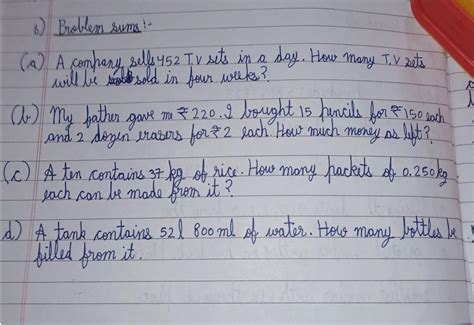 6) Problem sums:-
(a) A company sells 452 T.V sets in a day. How many T.V sets
will be sold in four weeks?
(b) My father gave m ₹220. I bought 15 pencils for ₹150 each
and 2 dozen erasers for ₹2 each. How much money as left?
(c) A ten contains 37 kg of rice. How many packets of 0.250kg
each can be made from it?
d) A tank contains 52l 800ml of water. How many bottles be
filled from it.